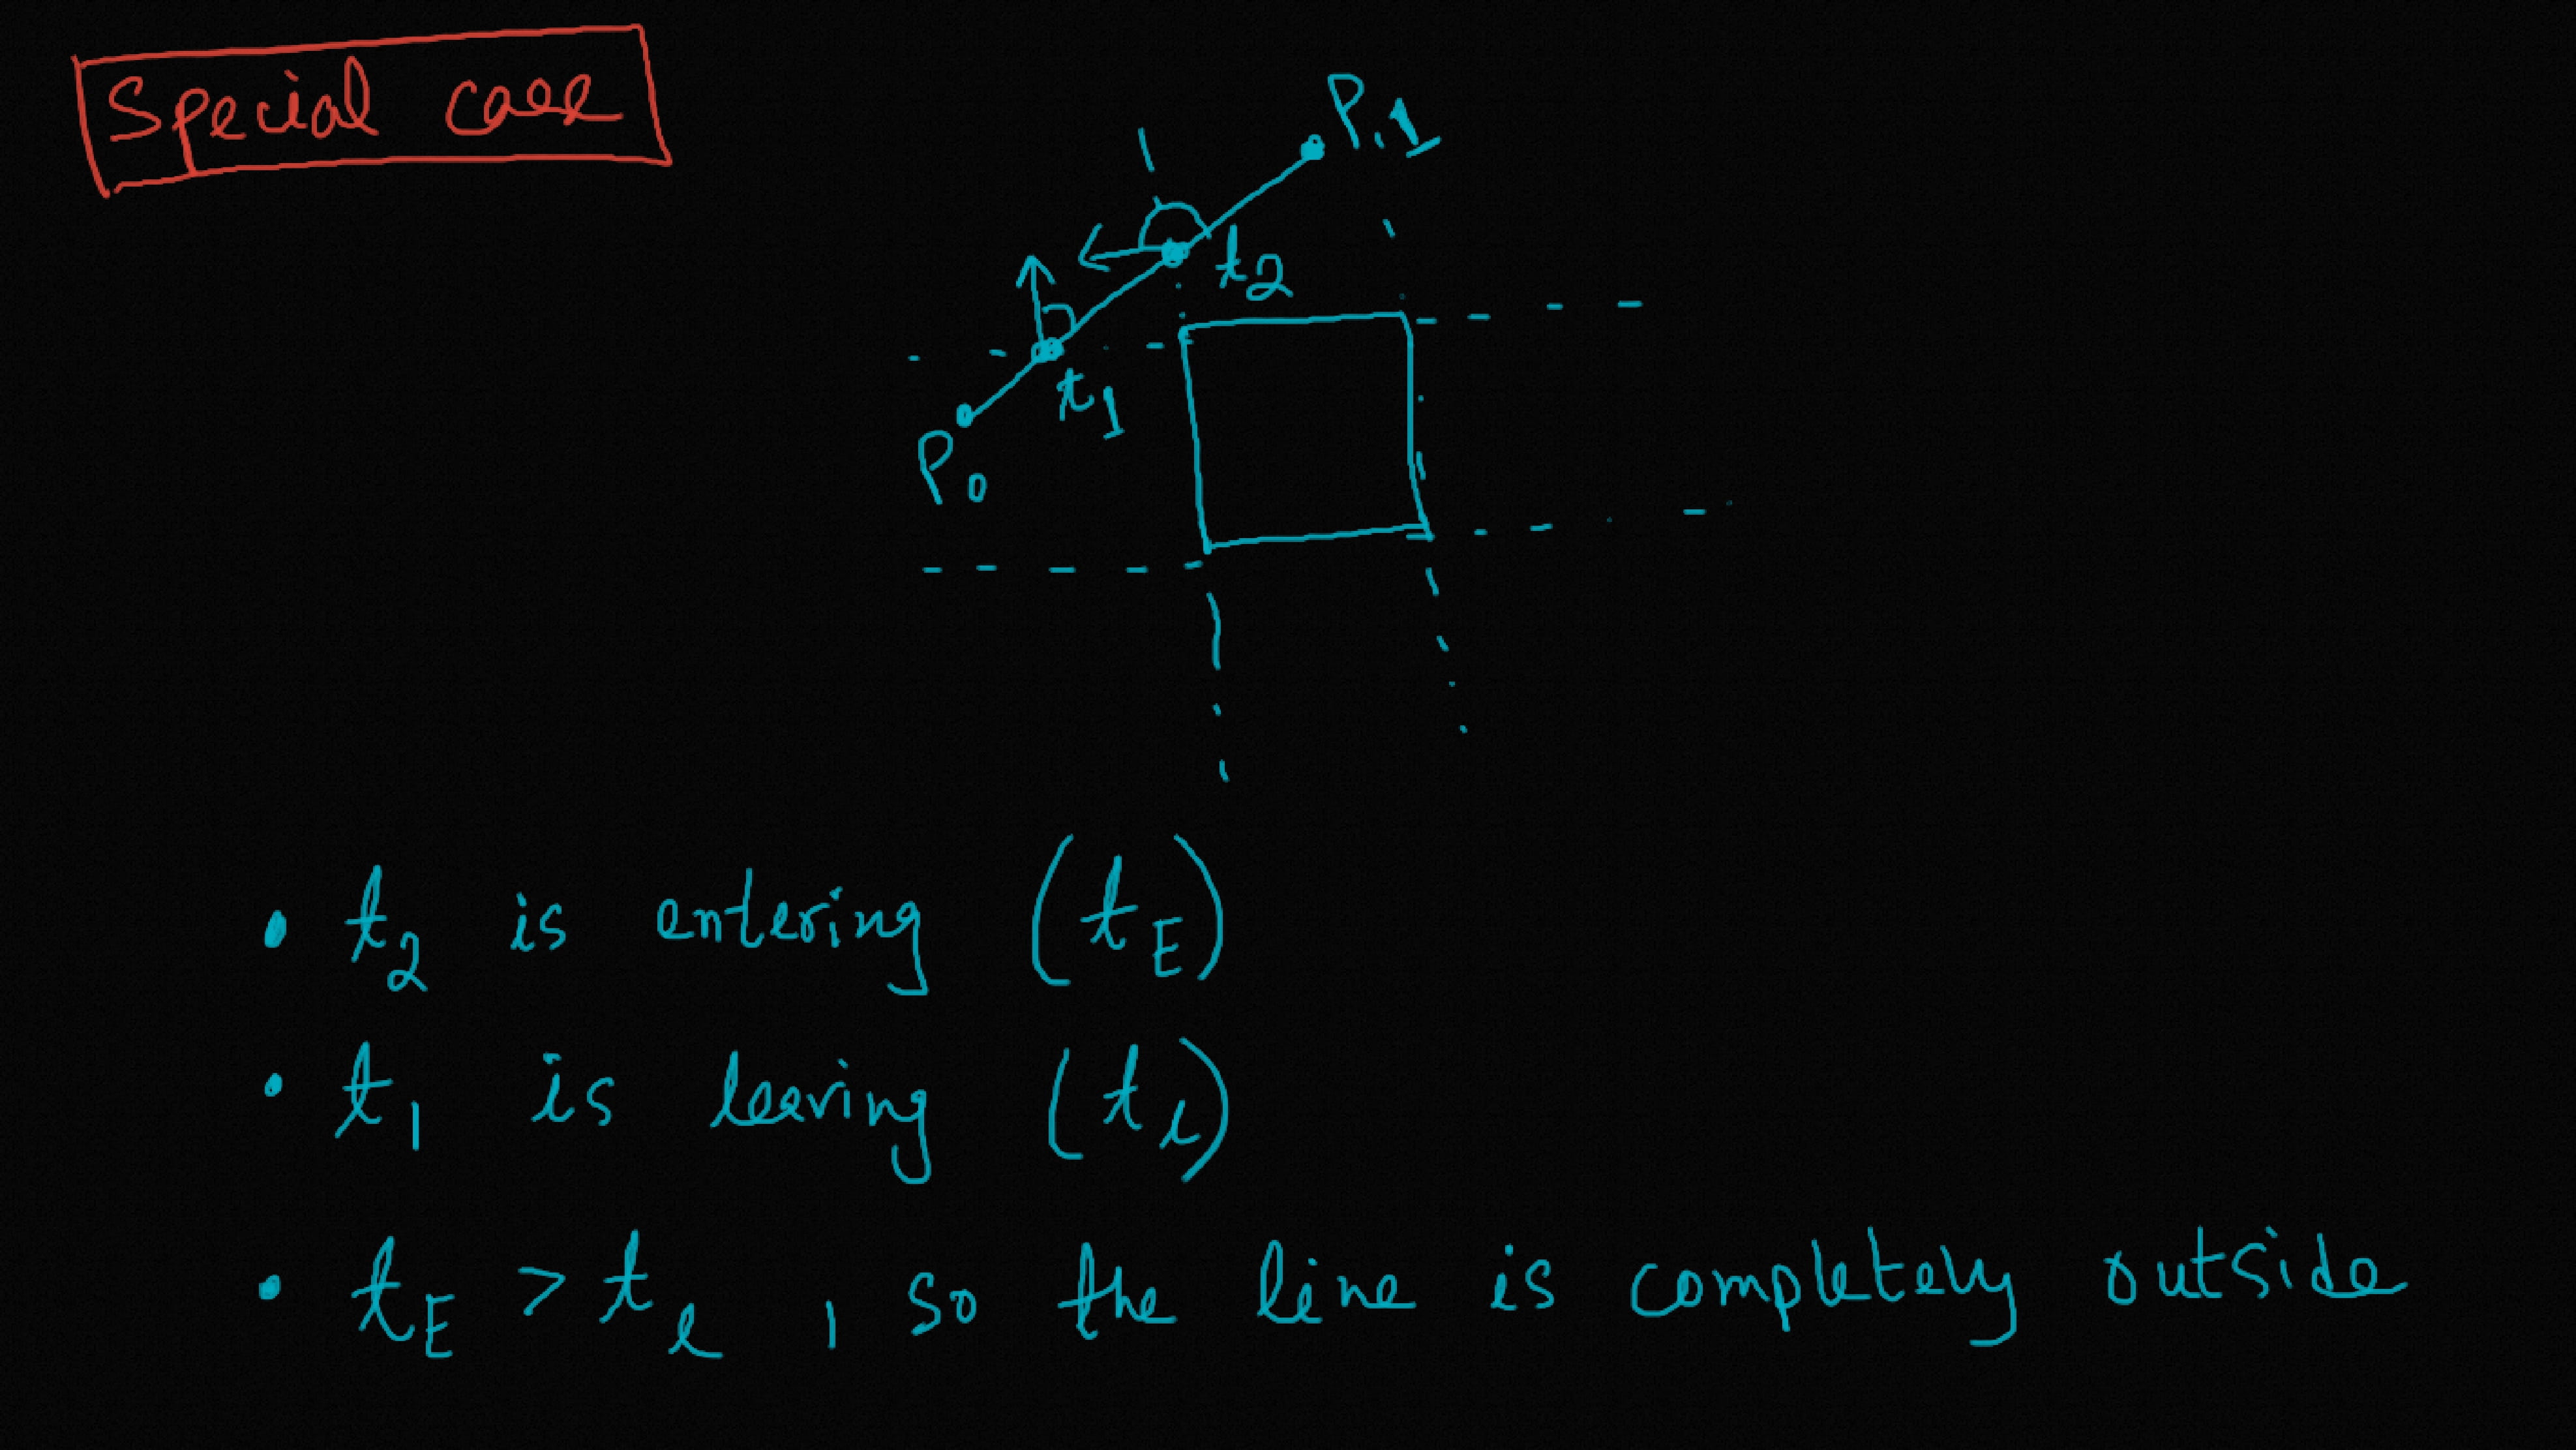 Special case
P.1
t2
t1
P0
• t2 is entering (tE)
• t1 is leaving (tL)
• tE > tl, so the line is completely outside